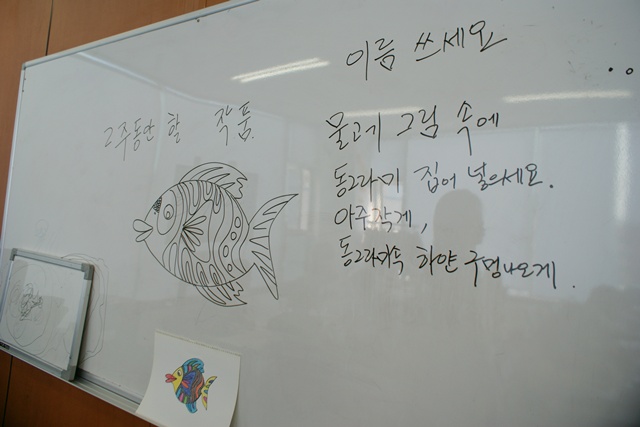 이름 쓰세요
2주동안 할 작품
물고기 그림 속에
동그라미 집어 넣으세요.
아주작게,
동그라미속 하얀 구멍나오게.